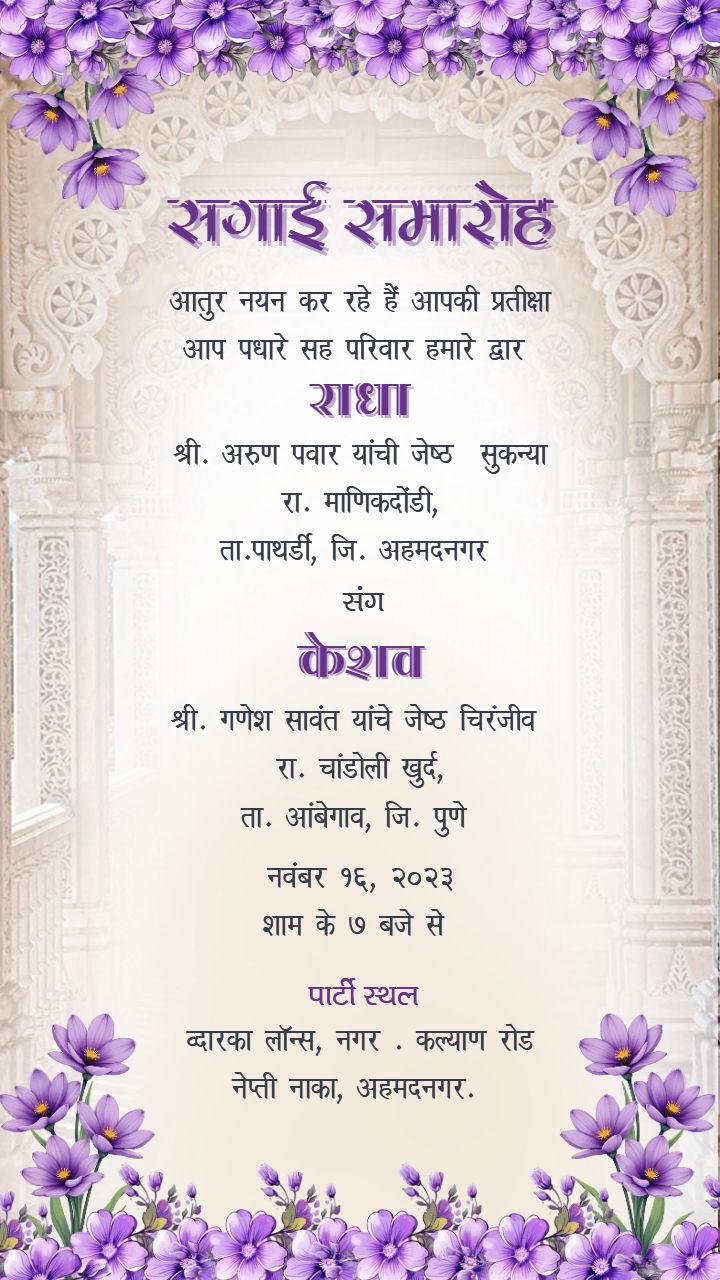 सगाई समारोह
आतुर नयन कर रहे हैं आपकी प्रतीक्षा
आप पधारे सह परिवार हमारे द्वार
राधा
श्री. अरुण पवार यांची जेष्ठ सुकन्या
रा. माणिकदोंडी,
ता.पाथर्डी, जि. अहमदनगर
संग
केशव
श्री. गणेश सावंत यांचे जेष्ठ चिरंजीव
रा. चांडोली खुर्द,
ता. आंबेगाव, जि. पुणे
नवंबर १६, २०२३
शाम के ७ बजे से
पार्टी स्थल
व्दारका लॉन्स, नगर . कल्याण रोड
नेप्ती नाका, अहमदनगर.